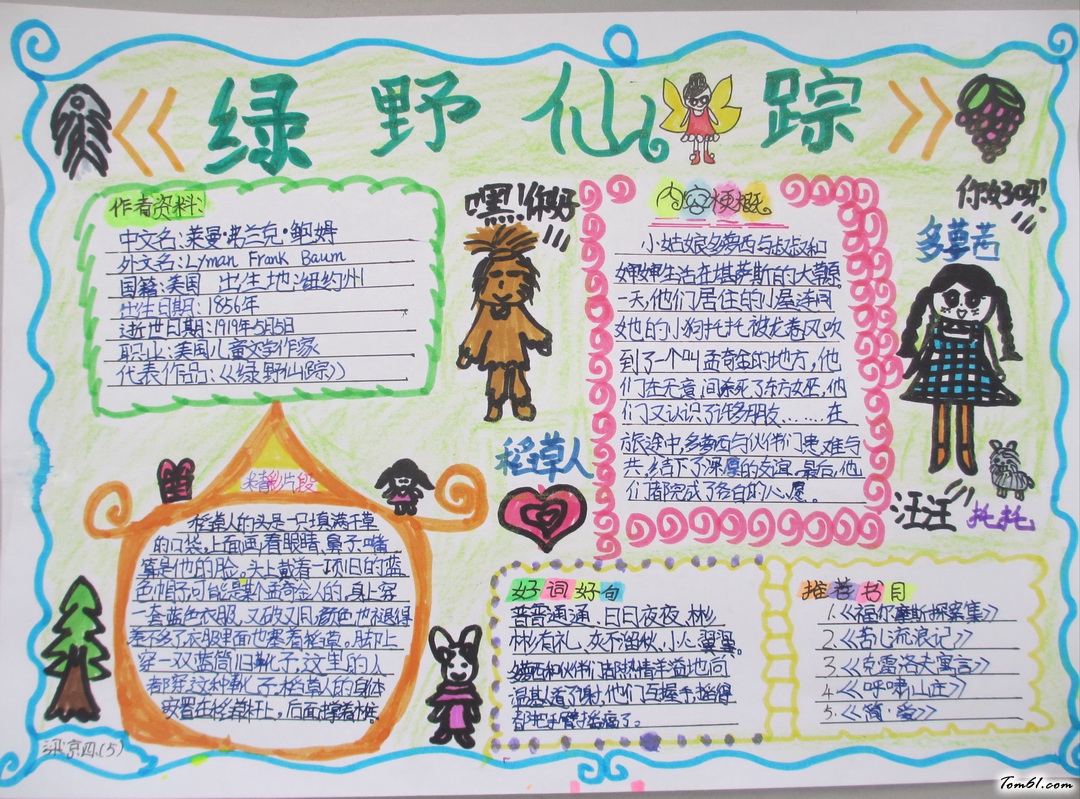 绿野仙踪
作者资料:
中文名:莱曼·弗兰克·鲍姆
外文名:Lyman Frank Baum
国籍:美国 出生地:纽约州
出生日期:1856年
逝世日期:1919年5月5日
职业:美国儿童文学作家
代表作品:《绿野仙踪》
嘿!你好
稻草人
内容梗概
小姑娘多萝西与叔叔和
婶婶生活在堪萨斯的大草原
一天,他们居住的小屋连同
她的小狗托托被龙卷风吹
到了一个叫孟奇金的地方,他
们在无意间杀死了东方女巫,他
们又认识了许多朋友………在
旅途中,多萝西与伙伴们患难与
共,结下了深厚的友谊,最后,他
们都完成了各自的心愿。
你好呀!
多萝茜
汪汪
托托
精彩片段
稻草人的头是一只填满干草
的口袋,上面画着眼睛、鼻子、嘴
算是他的脸。头上戴着一顶旧的蓝
色帽子可能是某个孟奇金人的,身上穿
一套蓝色衣服,又破又旧,颜色也褪得
差不多了衣服里面也塞着稻草。脚上
穿一双蓝筒旧靴子,这里的人
都穿这种靴子,稻草人的身体
好词好句
普普通通、日日夜夜、彬
彬有礼、灰不溜秋、小心翼翼。
多萝西和伙伴们都热情洋溢地向
温基道了谢,他们互握手,握得
都把手臂摇痛了。
推荐书目
1.《福尔摩斯探案集》
2.《苦儿流浪记》
3.《克雷洛夫寓言》
4.《呼啸山庄》
5.《简·爱》
四(5)
Tom61.com